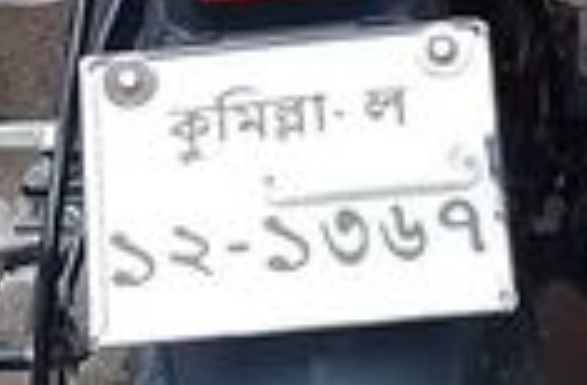 কুমিল্লা- ল
১২-১৩৬৭